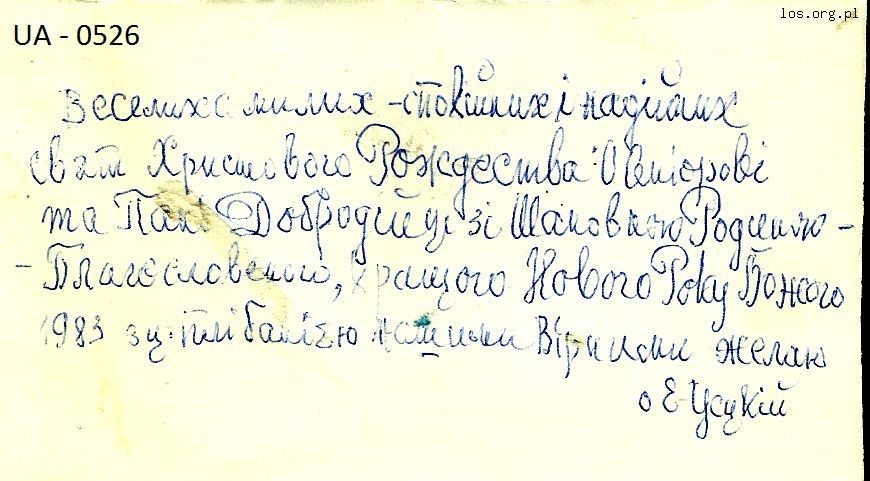 los.org.pl
UA - 0526
Веселих а милих - спокійних і надійних
свят Христового Рождества: О. Сеніорові
та Пані Добродійці зі Шановною Родиною -
- Благословеного, кращого Нового Року Божого
1983 з ц. нашими Вірними желаю
о Е